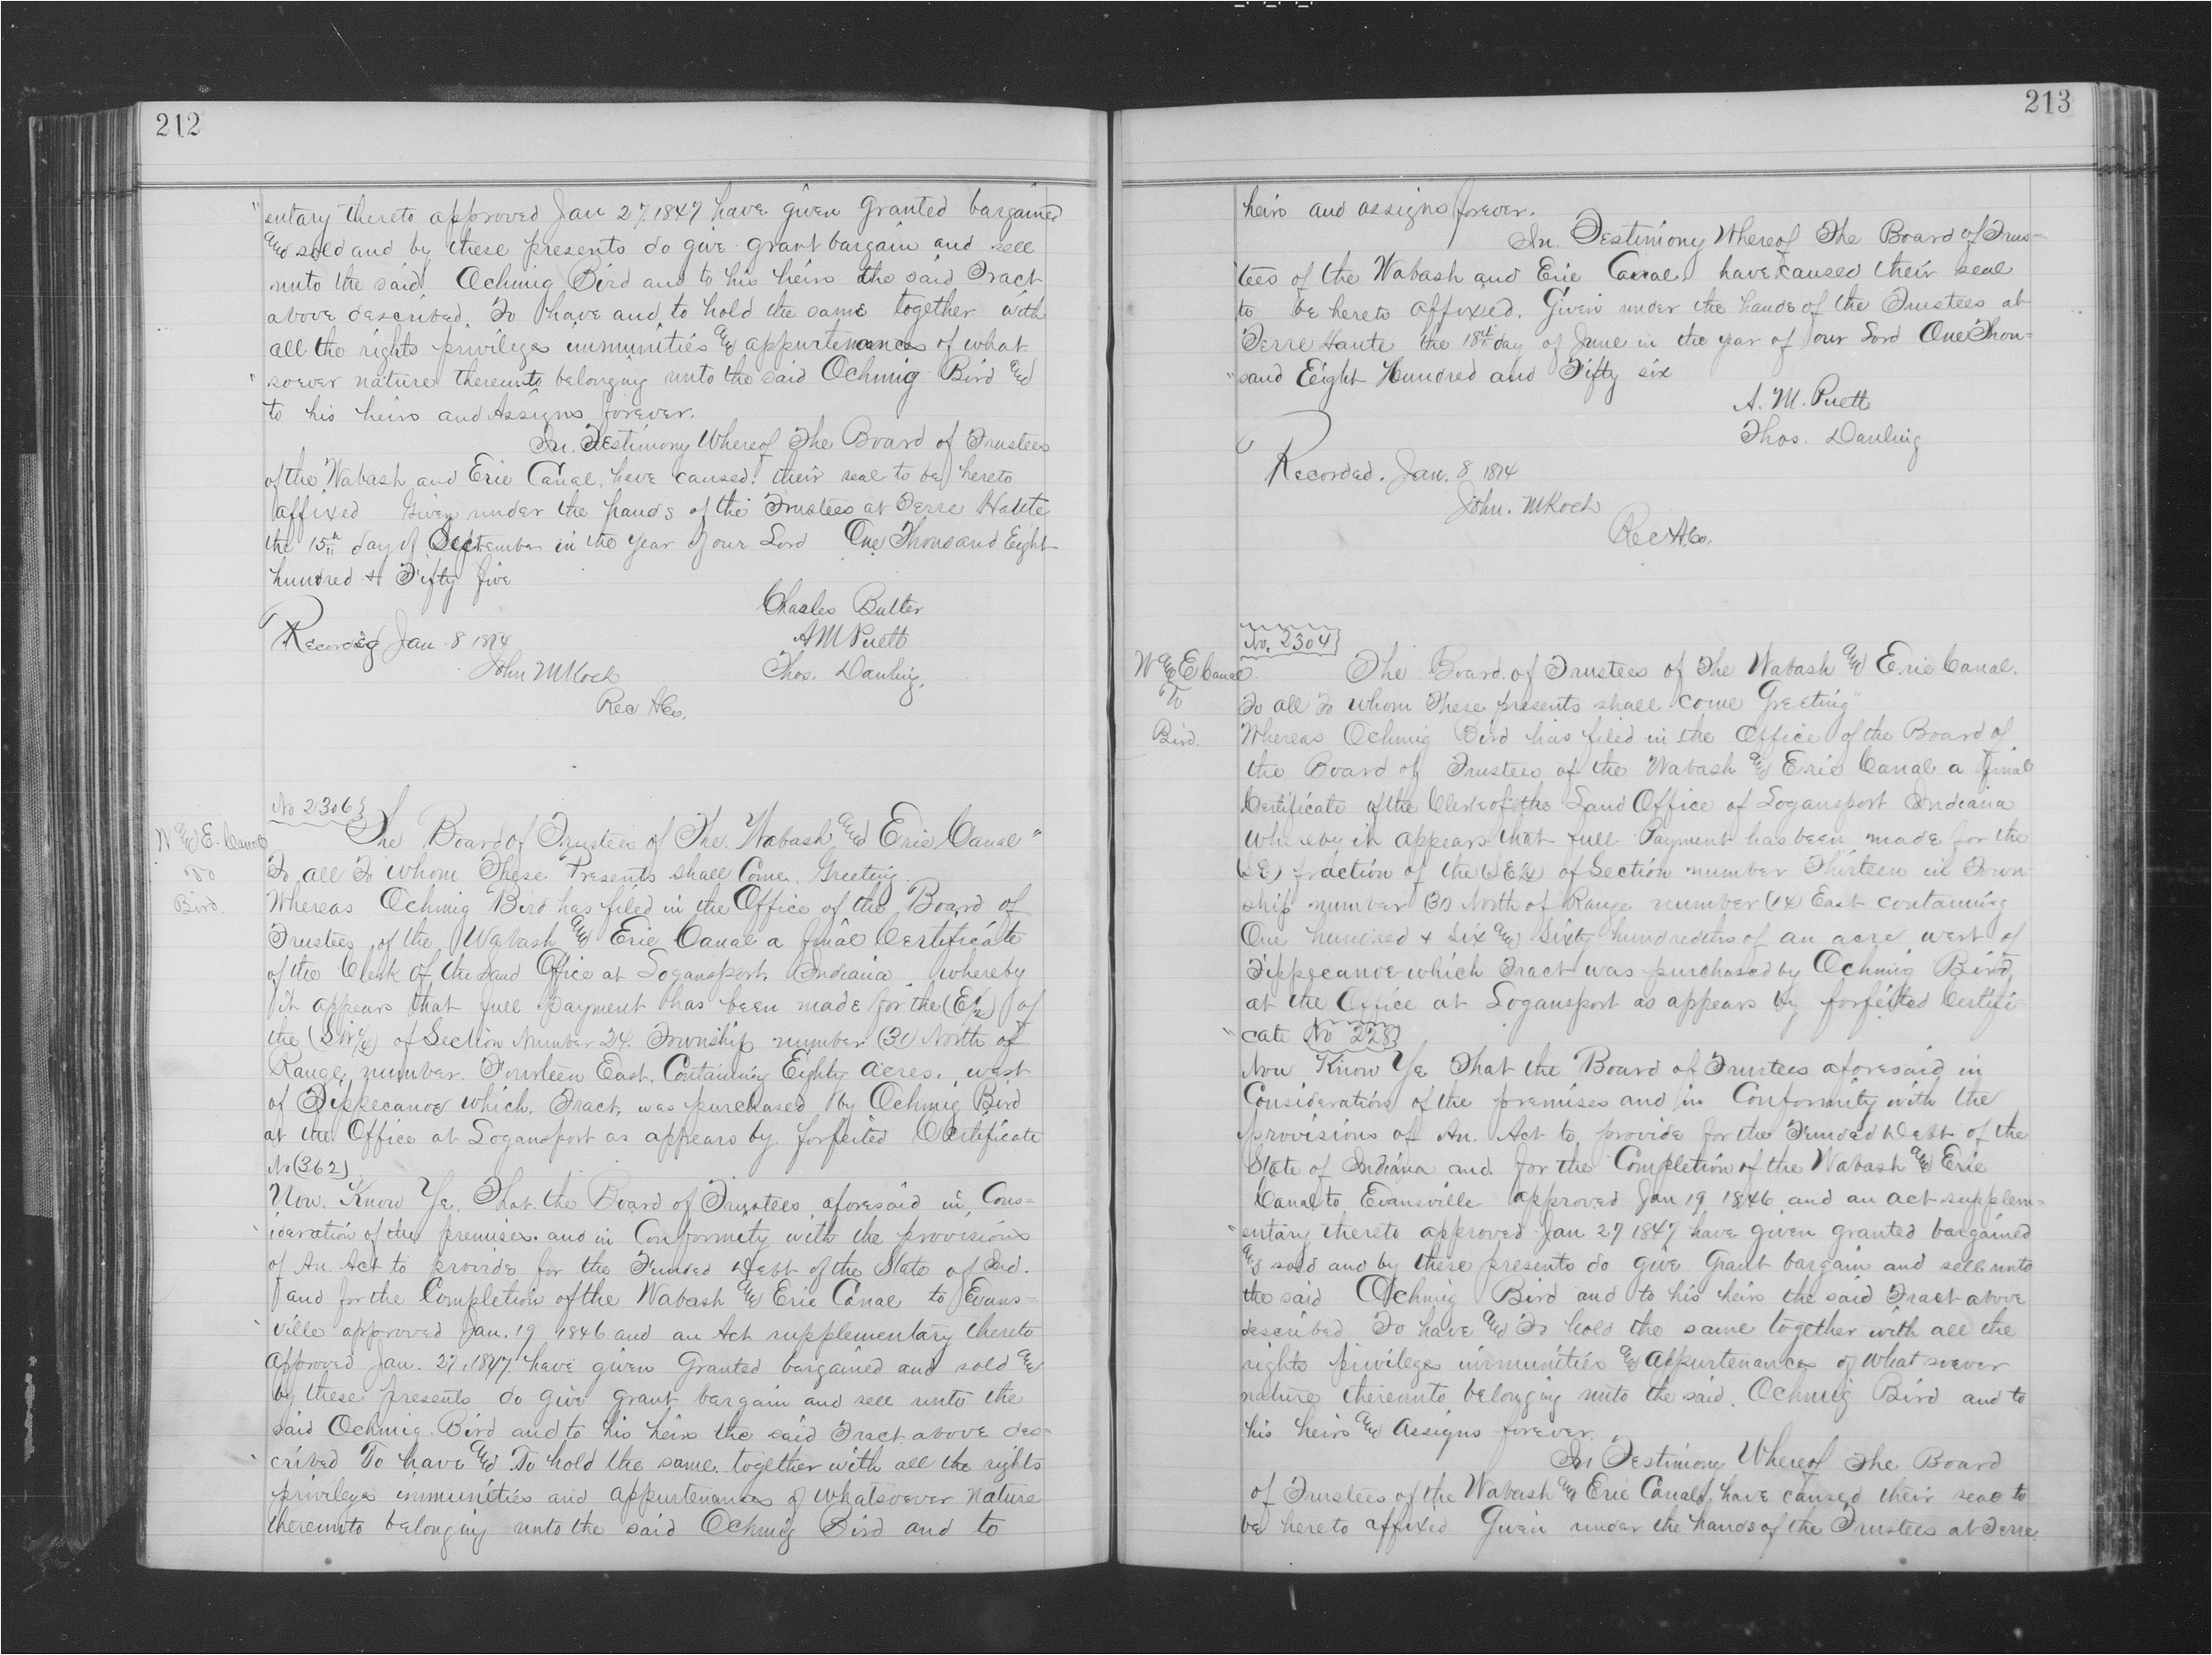 212
"entary thereto approved Jan 27. 1847 have given Granted bargained
and sold and by these presents do give grant bargain and sell
unto the said Ochmig Bird and to his heirs the said Tract
above described. To have and to hold the same together with
all the rights privileges immunities and appurtenances of what
"soever nature thereunto belonging unto the said Ochmig Bird and
to his heirs and Assigns forever.
In Testimony Whereof The Board of Trustees
of the Wabash and Erie Canal, have caused their seal to be hereto
affixed Given under the hands of the Trustees at Terre Haute
the 15th day of September in the year of our Lord One Thousand Eight
hundred & Fifty five
Charles Butler
Recorded Jan. 8 1874 A M Puett
John M Koch Thos. Dauling.
Rec A.Co.
No 2306}
W and E. Canal The Board of Trustees of The Wabash and Erie Canal"
To To all To whom These Presents shall Come. Greeting.
Bird. Whereas Ochmig Bird has filed in the Office of the Board of
Trustees of the Wabash and Erie Canal a final Certificate
of the Clerk of the Land Office at Logansport. Indiana whereby
it appears that full Payment has been made for the (E½) of
the (SW¼) of Section Number 24. Township number (31) North of
Range number. Fourteen East. Containing Eighty acres. west
of Tippecanoe which. Tract. was purchased by Ochmig Bird
at the Office at Logansport as appears by forfeited Certificate
No (362)
Now. Know Ye. That the Board of Trustees aforesaid in Cons=
ideration of the premises. and in Conformity with the provisions
of An Act to provide for the Funded Debt of the State of Ind.
and for the Completion of the Wabash and Erie Canal to Evans=
ville approved Jan. 19 1846 and an Act supplementary thereto
Approved Jan. 27. 1847. have given Granted bargained and sold and
by these presents do give grant bargain and sell unto the
said Ochmig Bird and to his heirs the said Tract above des=
cribed To have and To hold the same together with all the rights
privileges immunities and appurtenances of whatsoever nature
thereunto belonging unto the said Ochmig Bird and to
213
heirs and assigns forever.
In Testimony Whereof The Board of Trus=
tees of the Wabash and Erie Canal have caused their seal
to be hereto affixed. Given under the hands of the Trustees at
Terre Haute the 18th day of June in the year of our Lord One Thou=
"sand Eeight Hundred and Fifty six
A. M. Puett
Thos. Dauling
Recorded. Jan. 8 1874
John. M Koch
Rec A.Co.
No. 2304}
W and E Canal. The Board of Trustees of The Wabash and Erie Canal.
To To all To whom These presents shall come Greeting"
Bird. Whereas Ochmig Bird has filed in the Office of the Board of
the Board of Trustees of the Wabash and Erie Canal a final
Certificate of the Clerk of the Land Office of Logansport Indiana
Whereby it appears that full Payment has been made for the
(SE) fraction of the (SE¼) of Section number Thirteen in Town
ship number (31) North of Range number (14) East containing
One hundred & Six and Sixty hundredths of an acre west of
Tippecanoe which Tract was purchased by Ochmig Bird
at the Office at Logansport as appears by forfeited Certifi
"cate (No 228)
Now Know Ye That the Board of Trustees aforesaid in
Consideration of the premises and in Conformity with the
provisions of An. Act to provide for the Funded Debt of the
State of Indiana and for the Completion of the Wabash and Erie
Canal to Evansville approved Jan 19 1846 and an act supplem=
"entary thereto approved Jan 27 1847 have given granted bargained
and sold and by these presents do give Grant bargain and sell unto
the said Ochmig Bird and to his heirs the said Tract above
described To have and To hold the same together with all the
rights privileges immunities and appurtenances of whatsoever
nature thereunto belonging unto the said. Ochmig Bird and to
his heirs and assigns forever.
In Testimony Whereof The Board
of Trustees of the Wabash and Erie Canal have caused their seal to
be hereto affixed Given under the hands of the Trustees at Terre